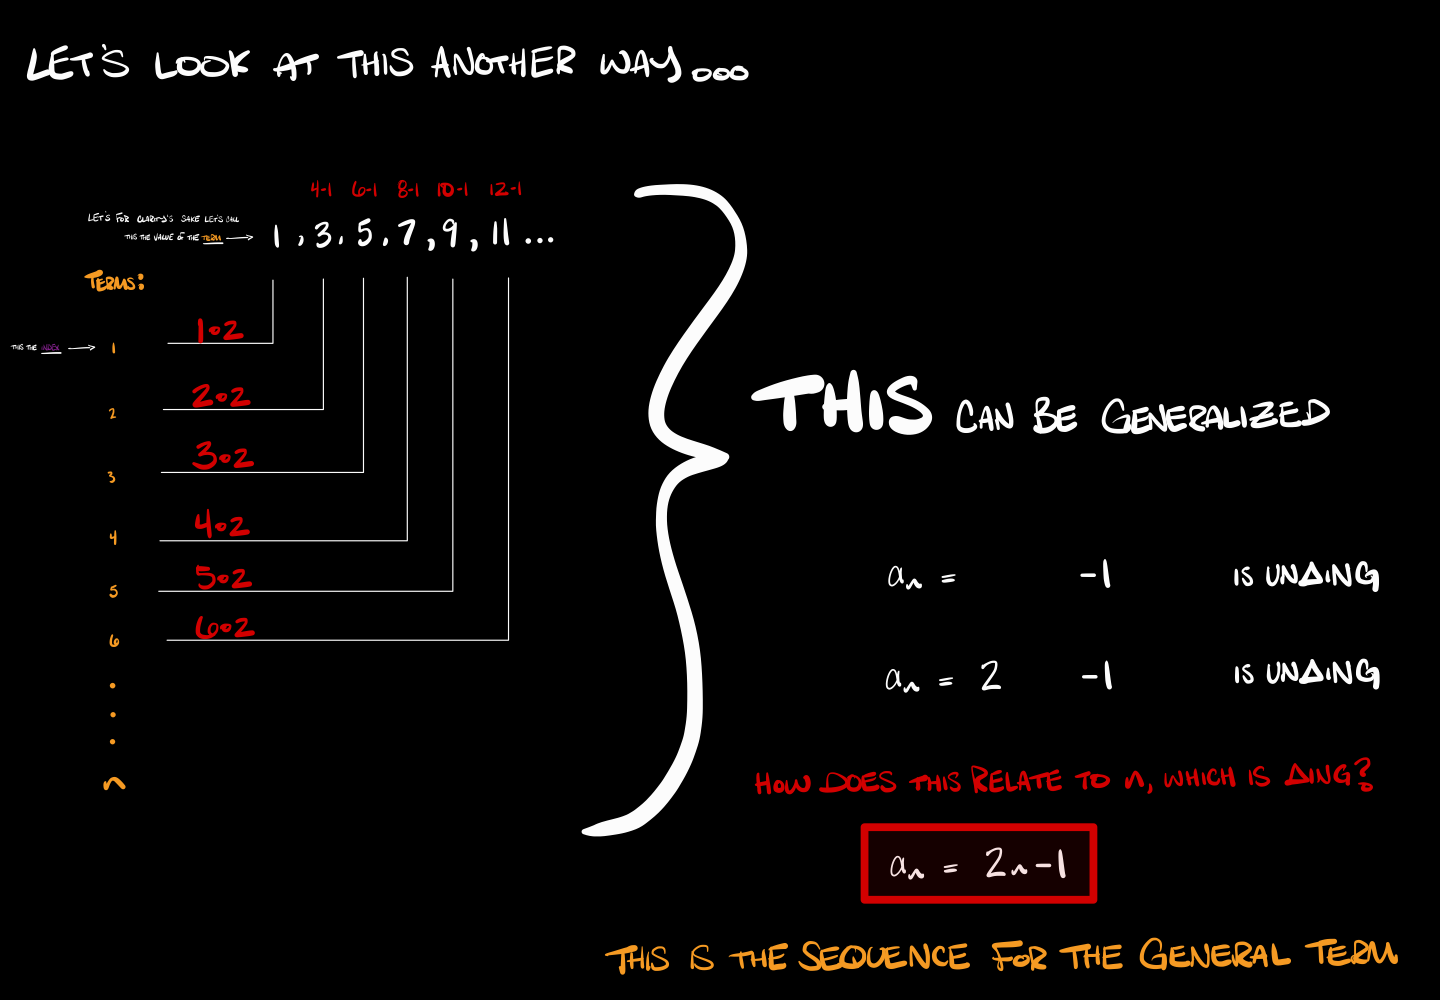 LET'S LOOK AT THIS ANOTHER WAY...
4-1 6-1 8-1 10-1 12-1
LET'S FOR CLARITY'S SAKE LET'S CALL
THIS THE VALUE OF THE TERM
1, 3, 5, 7, 9, 11 ...
TERMS:
THIS THE INDEX
1 1•2
2 2•2
3 3•2
4 4•2
5 5•2
6 6•2
.
.
.
n
THIS CAN BE GENERALIZED
aₙ = -1 IS UNΔING
aₙ = 2 -1 IS UNΔING
HOW DOES THIS RELATE TO n, WHICH IS ΔING?
aₙ = 2n-1
THIS IS THE SEQUENCE FOR THE GENERAL TERM